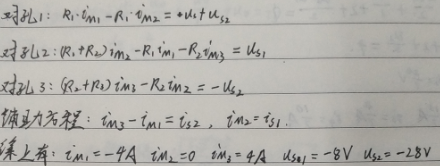 对孔1: R₁·iₘ₁-R₁·iₘ₂=+Us+Us₂
对孔2:(R₁+R₂)iₘ₂-R₁iₘ₁-R₂iₘ₃=Us₁
对孔3:(R₂+R₃)iₘ₃-R₂iₘ₂=-Us₂
辅助方程:iₘ₃-iₘ₁=is₂,iₘ₂=is₁.
综上有:iₘ₁=-4A iₘ₂=0 iₘ₃=4A Us₁=-8V Us₂=-28V